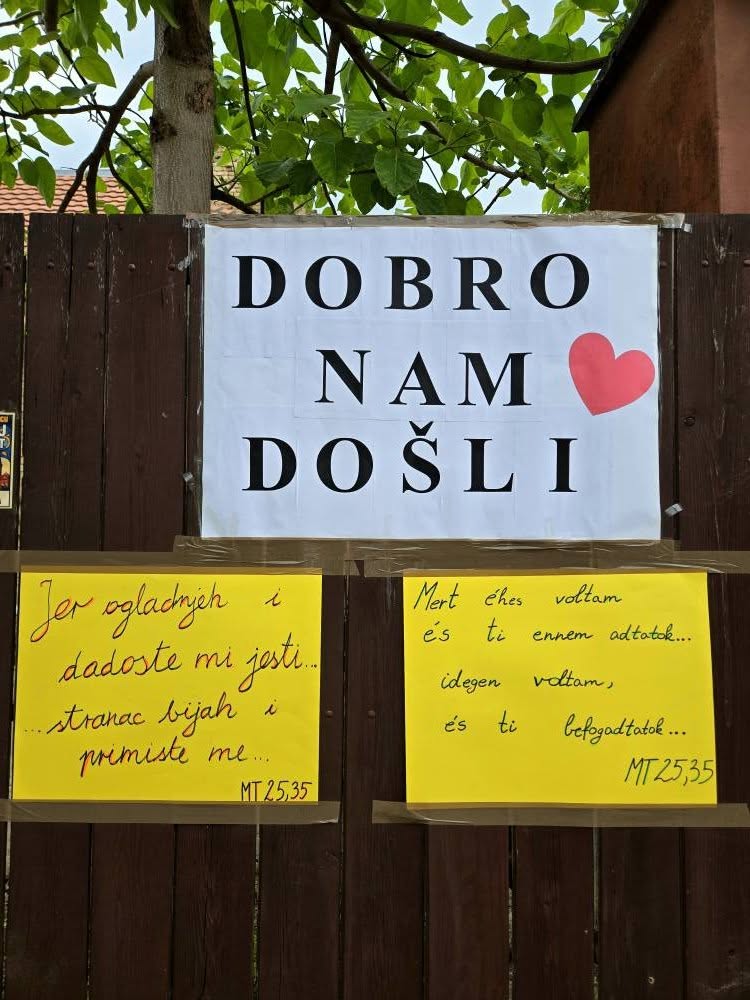 DOBRO
NAM
DOŠLI
Jer ogladnjeh i
dadoste mi jesti...
...stranac bijah i
primiste me...
MT 25,35
Mert éhes voltam
és ti ennem adtatok...
idegen voltam,
és ti befogadtatok...
MT 25,35